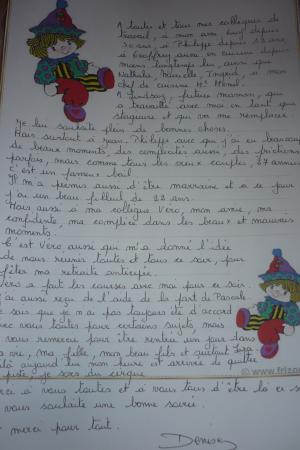 A toutes et tous mes collègues de
travail, à mon ami Guy depuis
30 ans, à Philippe depuis 27 ans,
à Geoffrey aussi en cuisine depuis
moins longtemps lui, ainsi que
Nathalie, Murielle, Ingrid, à mon
chef de cuisine Mr
à Lindsay, future maman, qui
a travaillé avec moi en tant que
stagiaire et qui va me remplacer
Je lui souhaite plein de bonnes choses.
Mais surtout à Jean-Philippe avec qui j'ai eu beaucoup
de beaux moments, des complicités aussi, des prichena
parfois, mais comme tous les vieux couples, 27 années
c'est un fameux bail
Il m'a permis aussi d'être marraine et à ce jour
j'ai un beau filleul, de 22 ans.
Mais aussi à ma collègue Véro, mon amie, ma
confidente, ma complice dans les beaux et mauvais
moments.
C'est Véro, aussi qui m'a donné l'idée
de nous réunir toutes et tous ce soir, pour
fêter ma retraite anticipée.
Véro a fait les courses avec moi pour ce soir.
J'ai aussi reçu de l'aide de la part de Pascale
Je sais que je n'ai pas toujours été d'accord
avec vous toutes pour certains sujets mais
vous remercie pour être rentrées un jour dans
ma vie, ma fille, mon beau fils et
Voilà aujourd'hui mon heure est arrivée de quitter
la piste je sors du cirque
© www.frizou
Merci à vous toutes et à vous tous d'être là ce soir
vous souhaite une bonne soirée.
merci pour tout.
Denise